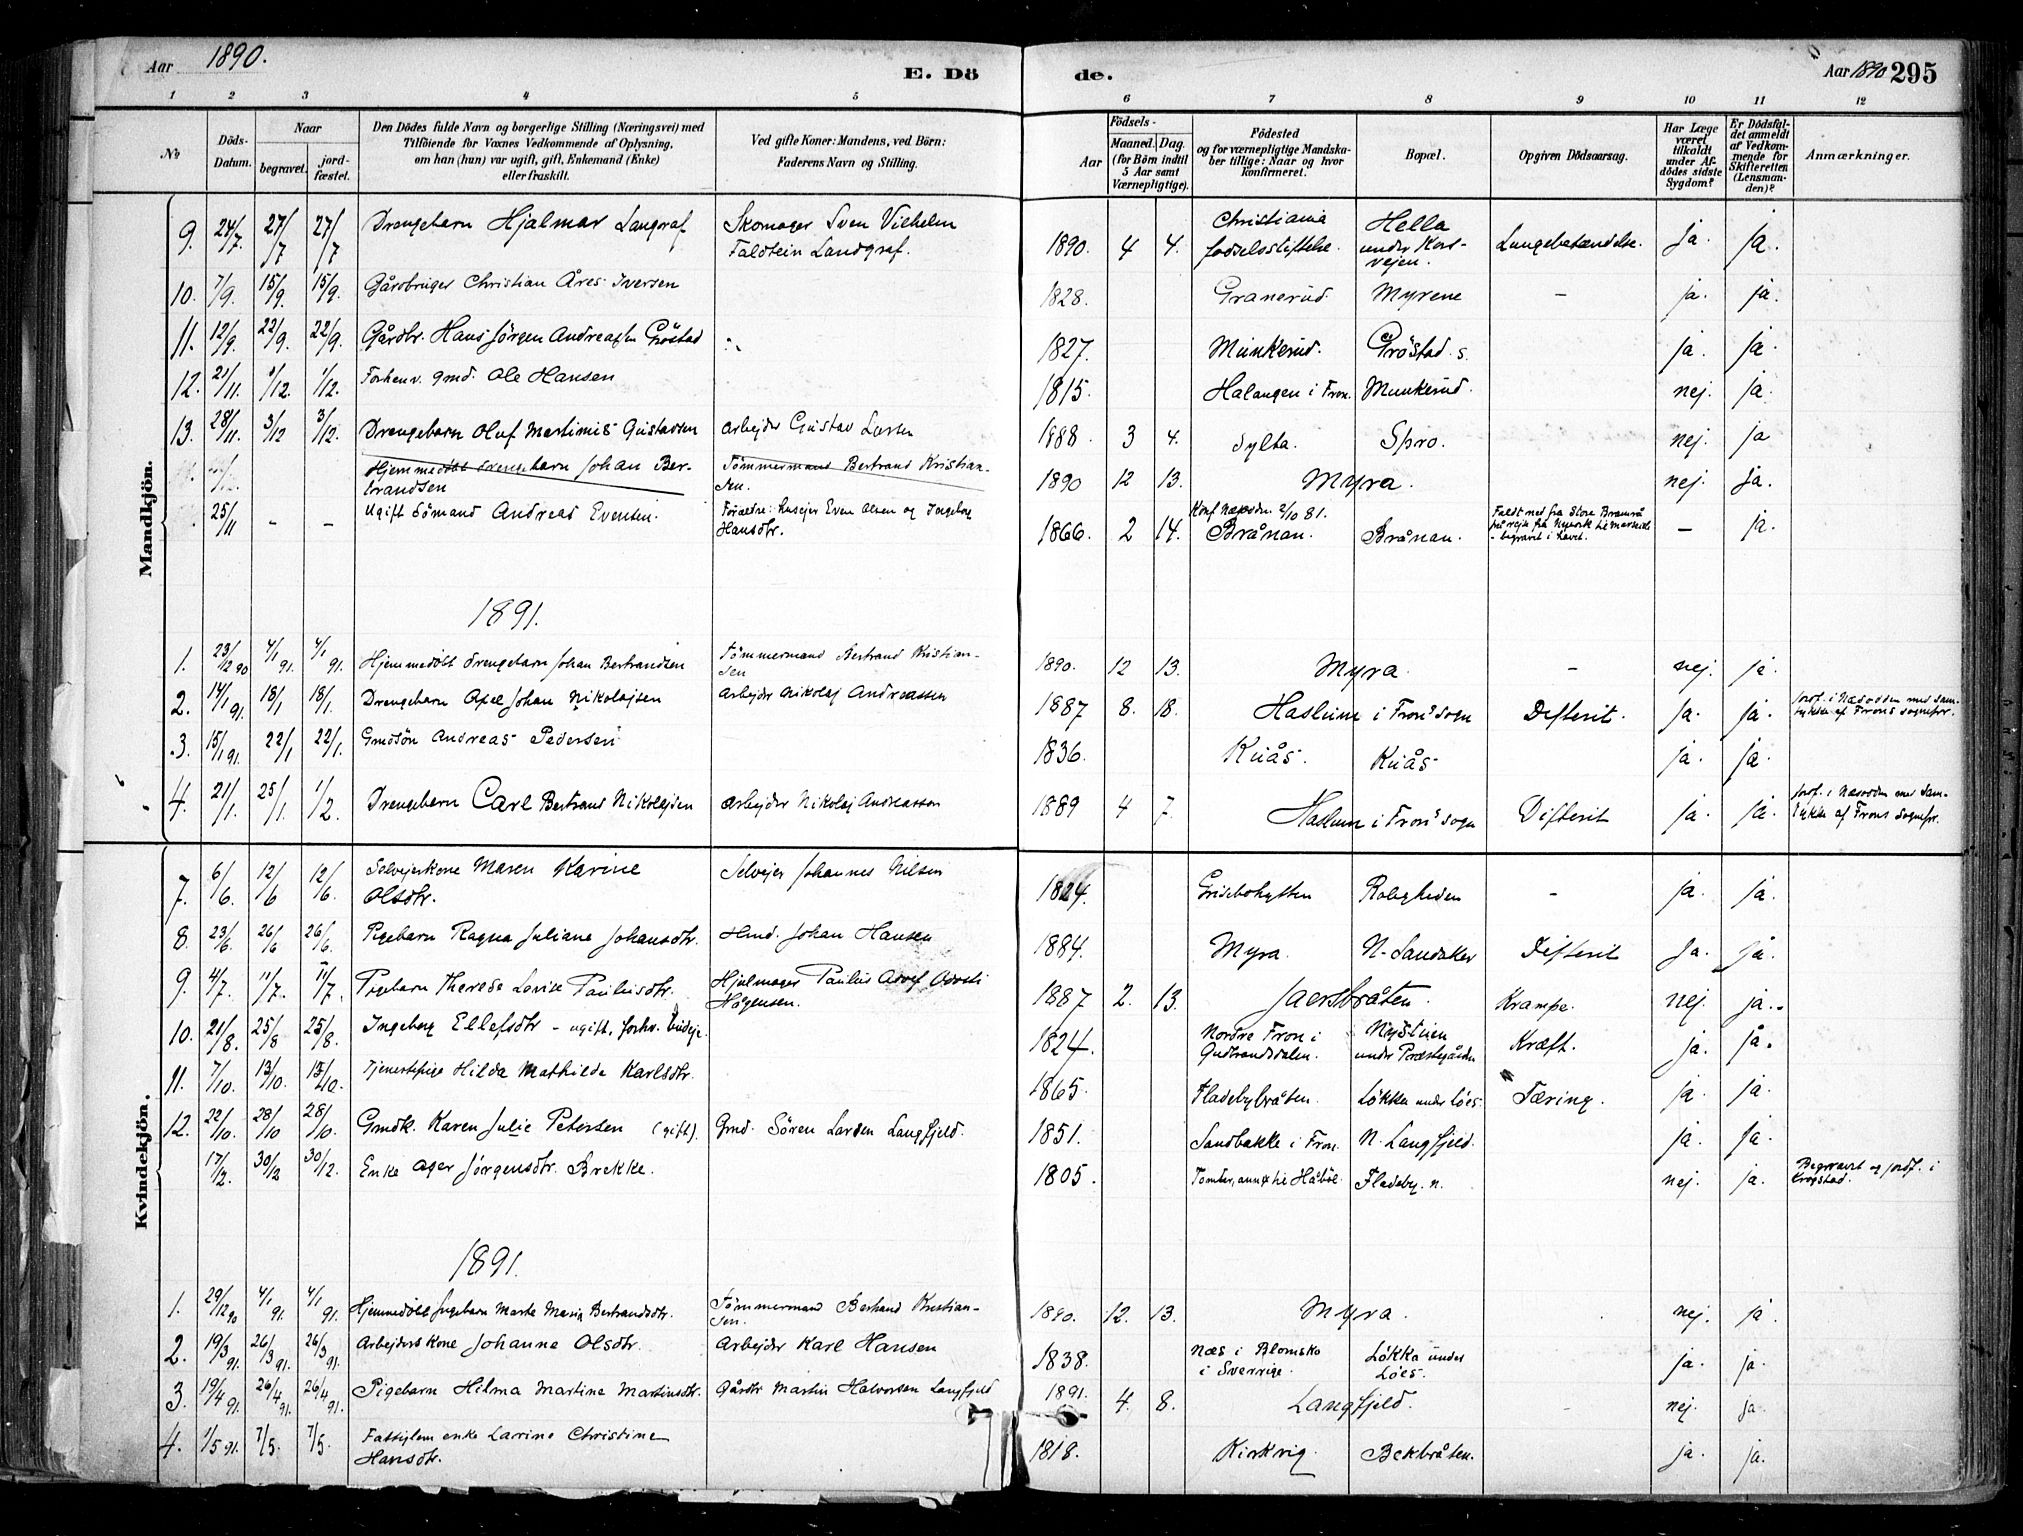 Aar 1890.
E. Dö
de.
Aar 1890 295
1 2 3 4 5 6 7 8 9 10 11 12
No
Döds-
Datum.
Naar
begravet.
jord-
fæstet.
Den Dödes fulde Navn og borgerlige Stilling (Næringsvei) med
Tilföiende for Voxnes Vedkommende af Oplysning,
om han (hun) var ugift, gift, Enkemand (Enke)
eller fraskilt.
Ved gifte Koner: Mandens, ved Börn:
Faderens Navn og Stilling.
Födsels-
Aar
Maaned. Dag.
(for Börn indtil
5 Aar samt
Værnepligtige).
Födested
og for værnepligtige Mandska-
ber tillige: Naar og hvor
konfirmeret.
Bopæl.
Opgiven Dödsaarsag.
Har Læge
været
tilkaldt
under Af-
dödes sidste
Sygdom?
Er Dödsfal-
det anmeldt
af Vedkom-
mende for
Skifteretten
(Lensman-
den)?
Anmærkninger.
Mandkjön.
9. 24/7. 27/7 27/7 Drengebarn Hjalmar Langraf Skomager Sven Vilhelm
Faldtein Landgraf. 1890. 4 4. Christiania
fødselsstiftelse. Hella
under Kors-
vejen. Lungebetændelse. Ja. ja.
10. 7/9. 15/9. 15/9. Gårdbruger Christian Åres Iversen 1828. Granerud. Myrene - ja. ja.
11. 12/9. 22/9. 22/9. Gårdbr. Hans Jørgen Andreassen Gröstad 1827. Munkerud. Gröstad s. ja. ja.
12. 21/11. 1/12. 1/12. Forhenv. gmd. Ole Hansen 1815. Halangen i Fron. Munkerud. nej. ja.
13. 28/11. 3/12 3/12. Drengebarn Oluf Martinius Gustavsen Arbejder Gustav Larsen 1888. 3 4. Sylta. Spro. nej. ja
Hjemmedøbt drengebarn Johan Ber-
trandsen Tömmermand Bertrand Kristian-
sen. 1890 12 13. Myra. nej. ja.
25/11 - - Ugift Sömand Andreas Evensen. Forældre: husejer Even Olsen og Ingeborg
Hansdtr. 1866 2 14. Konf. Næsodn. 2/10 81.
Brånan. Brånan. Faldt ned fra Store Bramrå
på rejse fra Nyork
- begravet i havet. - ja.
1891.
1. 23/12 90 4/1 91. 4/1 91. Hjemmedöbt Drengebarn Johan Bertrandsen Tömmermand Bertrand Kristian-
sen 1890. 12 13. Myra. - nej. ja.
2. 14/1 91. 18/1 18/1. Drengebarn Axel Johan Nikolajsen Arbejder Nikolaj Andreassen 1887 8. 18. Haslum i Fron's sogn Difterit. ja. ja. jordf. i Næsodden med Sam-
tykke af Frons sognepr.
3. 15/1 91. 22/1 22/1. Gmdsön Andreas Pedersen 1836. Kuås. Kuås ja. ja.
4. 21/1. 25/1. 1/2. Drengebarn Carl Bertrand Nikolajsen Arbejder Nikolaj Andreassen 1889 4 7. Haslum i Fron's sogn Difterit ja. ja. jordf. i Næsodden med Sam-
tykke af Frons Sognepr.
Kvindekjön.
7. 6/6. 12/6 12/6. Selvejerkone Maren Karine
Olsdtr. Selvejer Johannes Nilsen 1824. Grisebohytten Roligheden - ja. ja.
8. 23/6. 26/6 26/6. Pigebarn Ragna Juliane Johansdtr. Hmd. Johan Hansen 1884. Myra. N. Sandaker Difterit Ja. ja.
9. 4/7. 11/7. 11/7. Pigebarn Therese Lovise Paulusdtr. Hjulmager Paulus Adolf
Høgensen. 1887 2. 13. Jaersbråten. Krampe. nej. ja.
10. 21/8. 25/8 25/8. Ingeborg Ellefsdtr - ugift, forhv. budeje. 1824. Nordre Fron i
Gudbrandsdalen. Nystuen
under Præstegården Kræft. ja. ja.
11. 7/10. 13/10. 13/10. Tjenestepige Hilda Mathilde Karlsdtr. 1865. Fladebybråten. Løkka under Løes. Tæring. ja. ja.
12. 22/10. 28/10 28/10. Gmdk. Karen Julie Petersen (gift). Gmd. Sören Larsen Langfjeld. 1851. Sandbakke i Fron. N. Langfjeld. ja. ja.
17/12. 30/12 30/12. Enke Ager Jörgensdtr. Brekke. 1805. Tomter, annex til Håböl. Fladeby. n. nej. ja. Begravet og jordf. i
Krogstad.
1891.
1. 29/12 90 4/1 91. 4/1 91. Hjemmedöbt Pigebarn Marte Maria Bertrandsdtr. Tömmermand Bertrand Kristian-
sen. 1890. 12. 13. Myra. nej. ja.
2. 19/3 91. 26/3 91. 26/3 91. Arbejderskone Johanne Olsdtr. Arbejder Karl Hansen 1838. Næs i Blomsko
i Sverrige. Løkka under
Løes. ja. ja.
3. 19/4 91. 26/4 91. 26/4 91. Pigebarn Hilma Martine Martinsdtr. Gårdbr Martin Halvorsen Langfjeld 1891. 4. 8. Langfjeld. nej. ja.
4. 1/5 91. 7/5. 7/5. Fattiglem enke Larine Christine
Hansdtr. 1818. Kirkvig. Bekbråten. ja. ja.